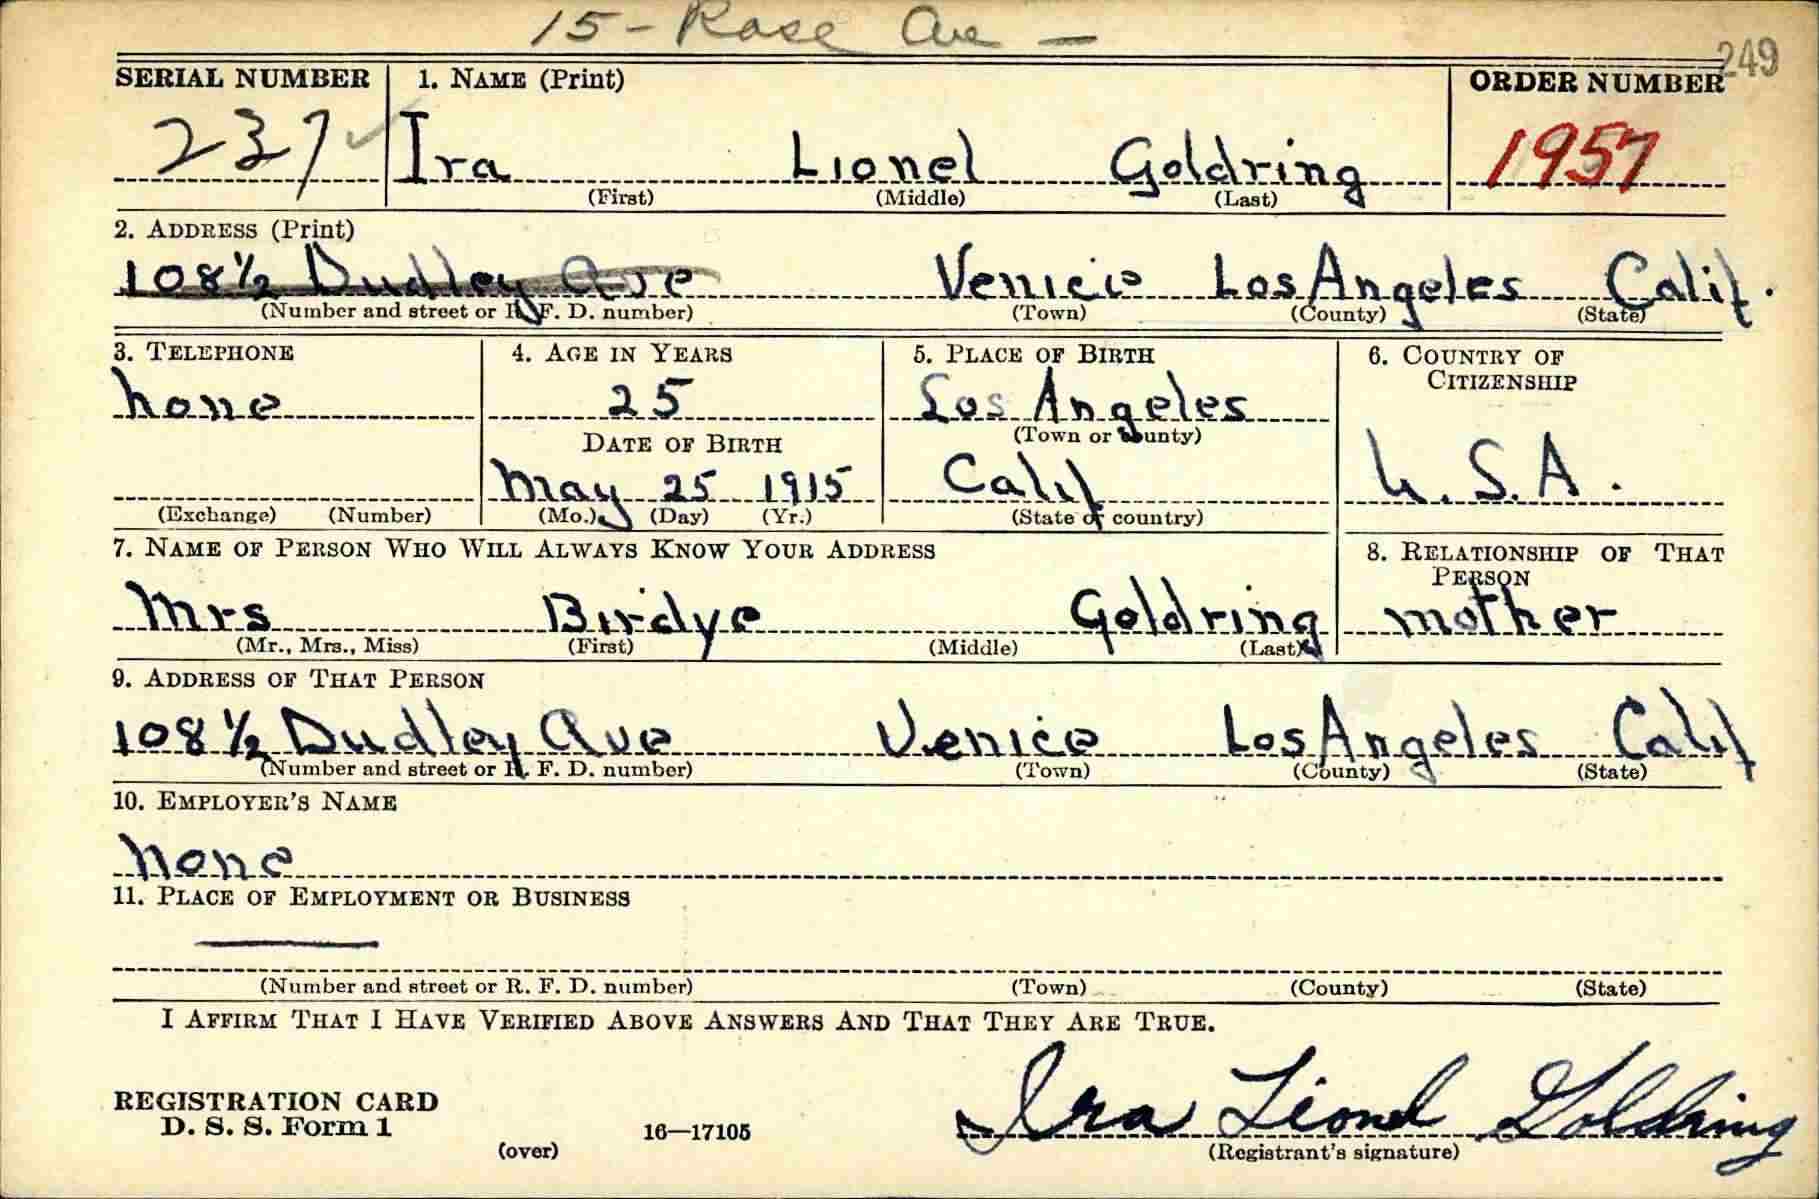 15 - Rose Ave -
249
SERIAL NUMBER 1. NAME (Print) ORDER NUMBER
237 Ira Lionel Goldring 1957
(First) (Middle) (Last)
2. ADDRESS (Print)
108 1/2 Dudley Ave Venice Los Angeles Calif.
(Number and street or R. F. D. number) (Town) (County) (State)
3. TELEPHONE 4. AGE IN YEARS 5. PLACE OF BIRTH 6. COUNTRY OF
CITIZENSHIP
none 25 Los Angeles
DATE OF BIRTH (Town or county)
May 25 1915 Calif U.S.A.
(Exchange) (Number) (Mo.) (Day) (Yr.) (State or country)
7. NAME OF PERSON WHO WILL ALWAYS KNOW YOUR ADDRESS 8. RELATIONSHIP OF THAT
PERSON
Mrs Birdye Goldring mother
(Mr., Mrs., Miss) (First) (Middle) (Last)
9. ADDRESS OF THAT PERSON
108 1/2 Dudley Ave Venice Los Angeles Calif
(Number and street or R. F. D. number) (Town) (County) (State)
10. EMPLOYER'S NAME
none
11. PLACE OF EMPLOYMENT OR BUSINESS
(Number and street or R. F. D. number) (Town) (County) (State)
I AFFIRM THAT I HAVE VERIFIED ABOVE ANSWERS AND THAT THEY ARE TRUE.
REGISTRATION CARD
D. S. S. Form 1 16—17105 Ira Lionel Goldring
(over) (Registrant's signature)